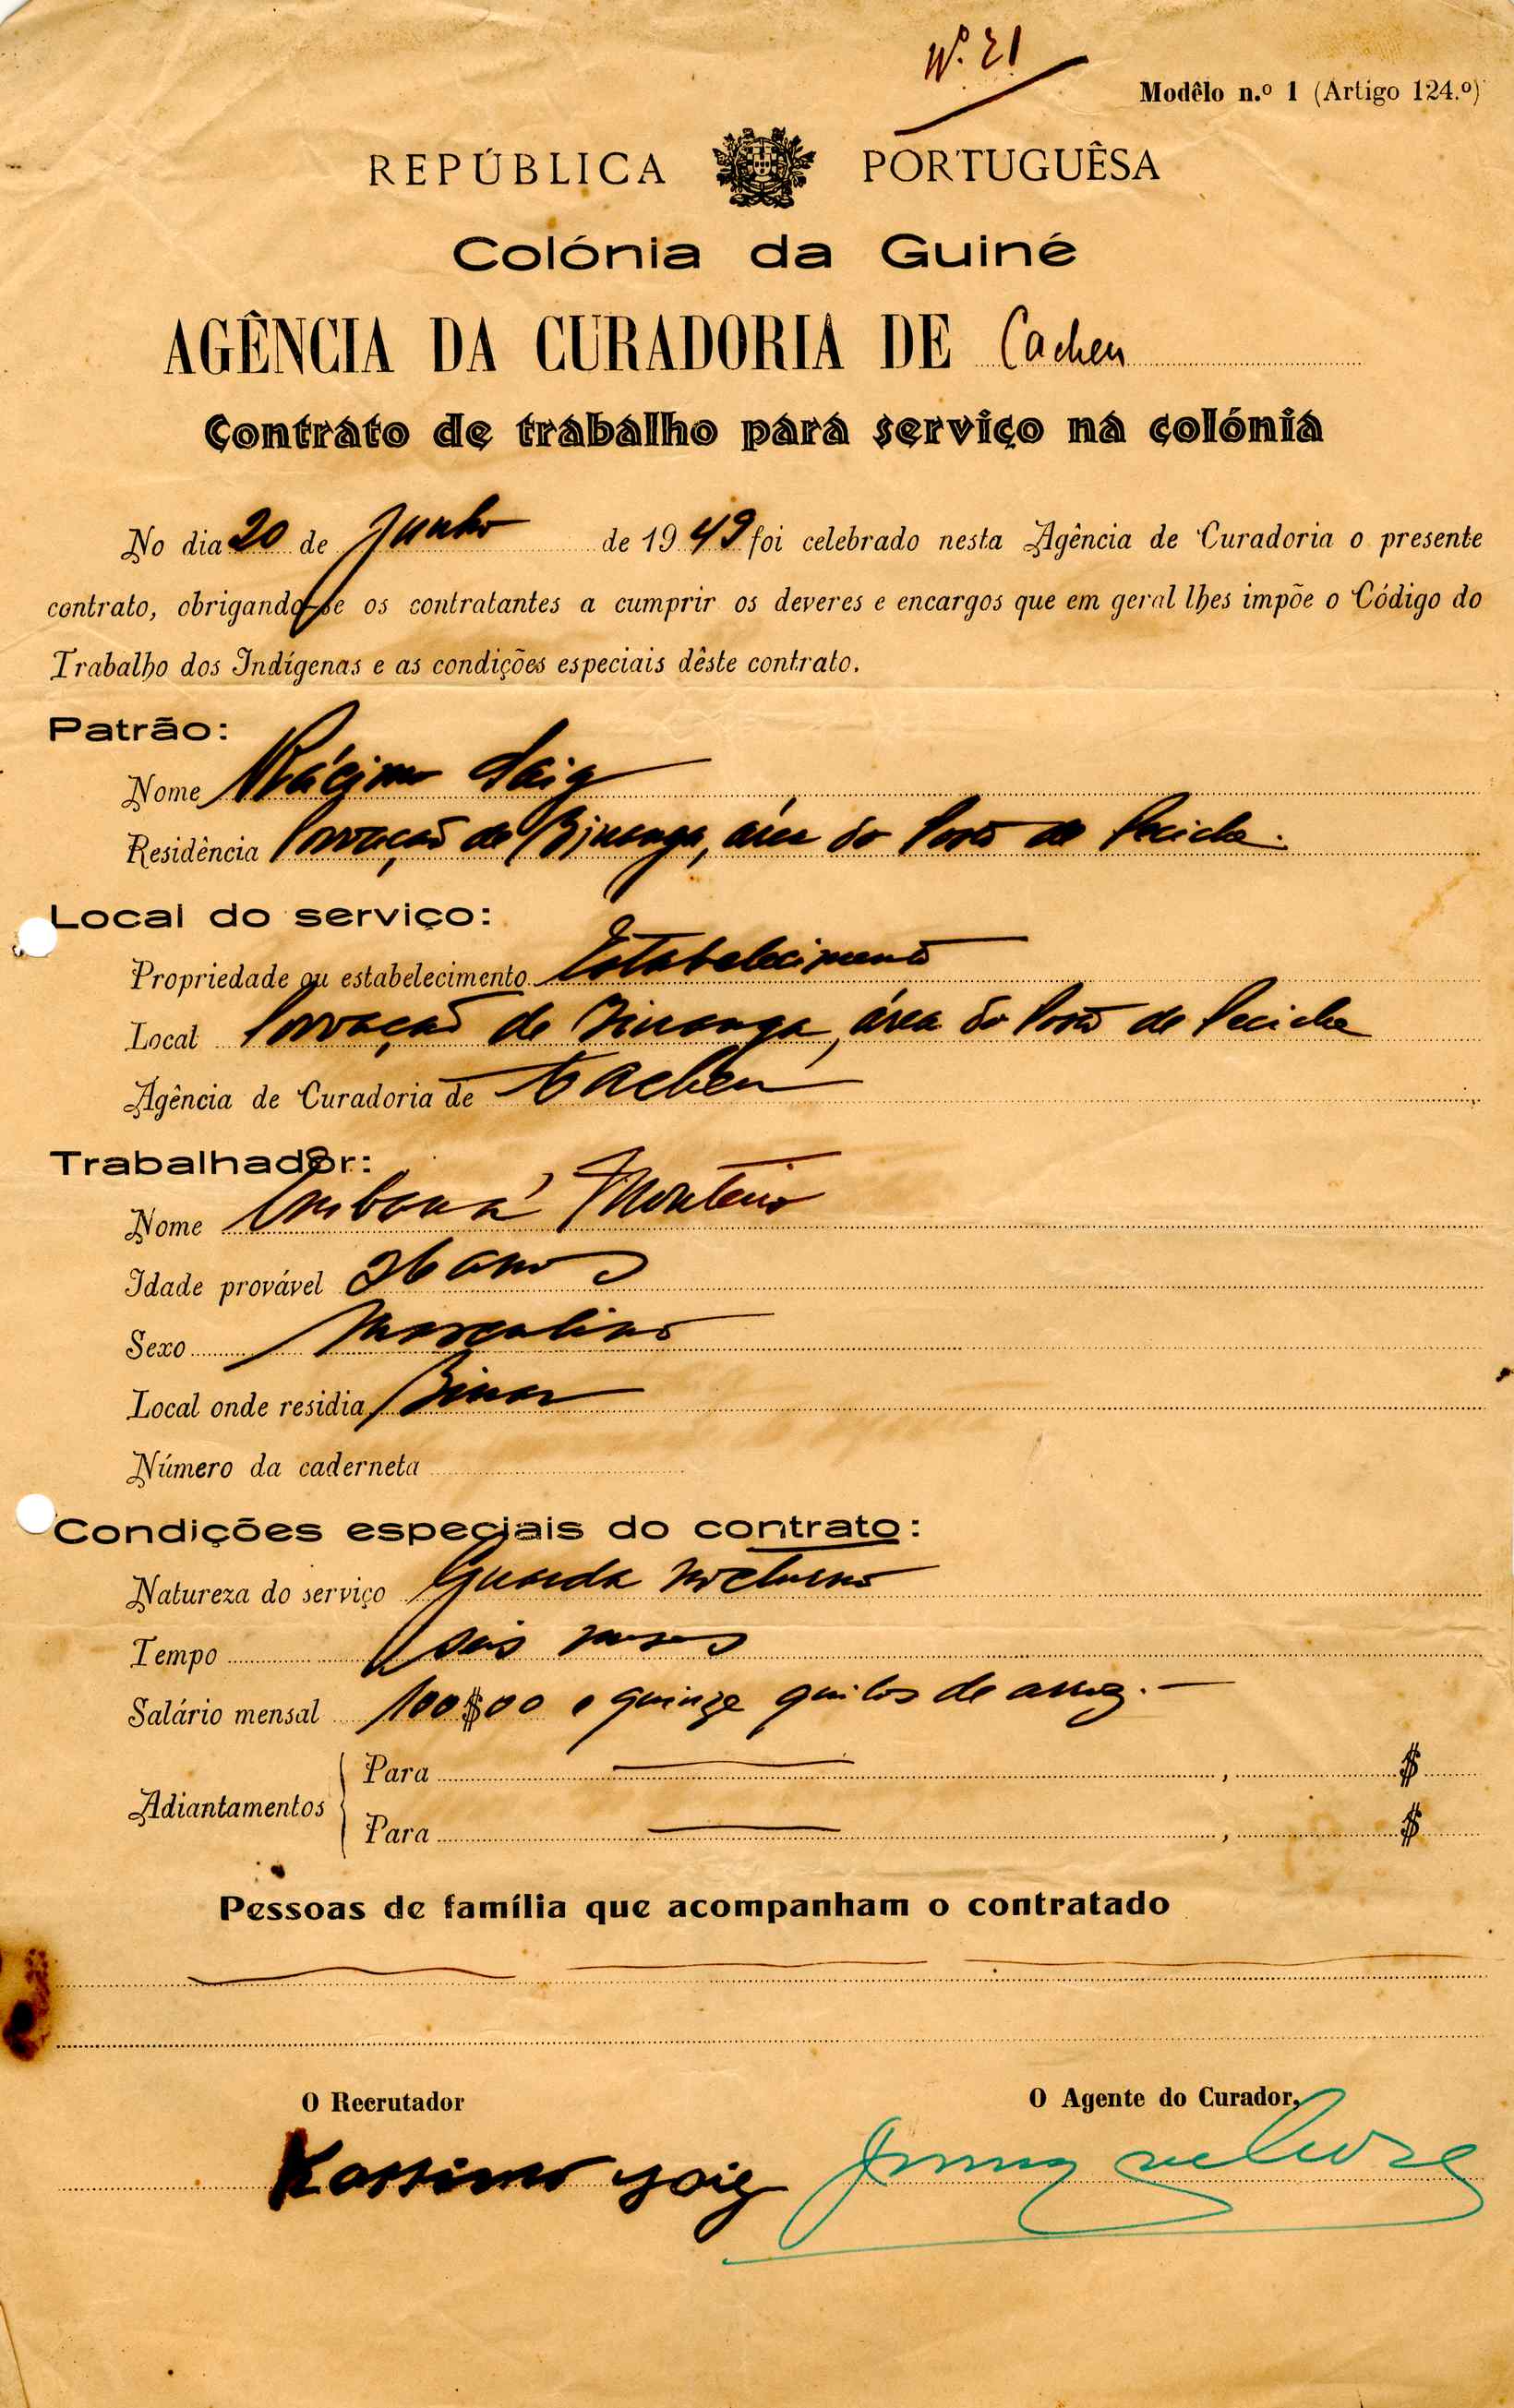 Nº. 21
Modêlo n.º 1 (Artigo 124.º)
REPÚBLICA PORTUGUÊSA
Colónia da Guiné
AGÊNCIA DA CURADORIA DE Cacheu
Contrato de trabalho para serviço na colónia
No dia 20 de Junho de 1949 foi celebrado nesta Agência de Curadoria o presente
contrato, obrigando-se os contratantes a cumprir os deveres e encargos que em geral lhes impõe o Código do
Trabalho dos Indígenas e as condições especiais dêste contrato.
Patrão:
Nome
Residência Povoação de Binonga, área do Posto de Pecixe.
Local do serviço:
Propriedade ou estabelecimento Estabelecimento
Local Povoação de Binonga, área do Posto de Pecixe
Agência de Curadoria de Cacheu
Trabalhador:
Nome Monteiro
Idade provável 26 anos
Sexo Masculino
Local onde residia Binar
Número da caderneta
Condições especiais do contrato:
Natureza do serviço Guarda nocturno
Tempo seis meses
Salário mensal 100$00 e quinze quilos de arroz.—
Adiantamentos
Para , $
Para , $
Pessoas de família que acompanham o contratado
O Recrutador
O Agente do Curador,
Kassimo